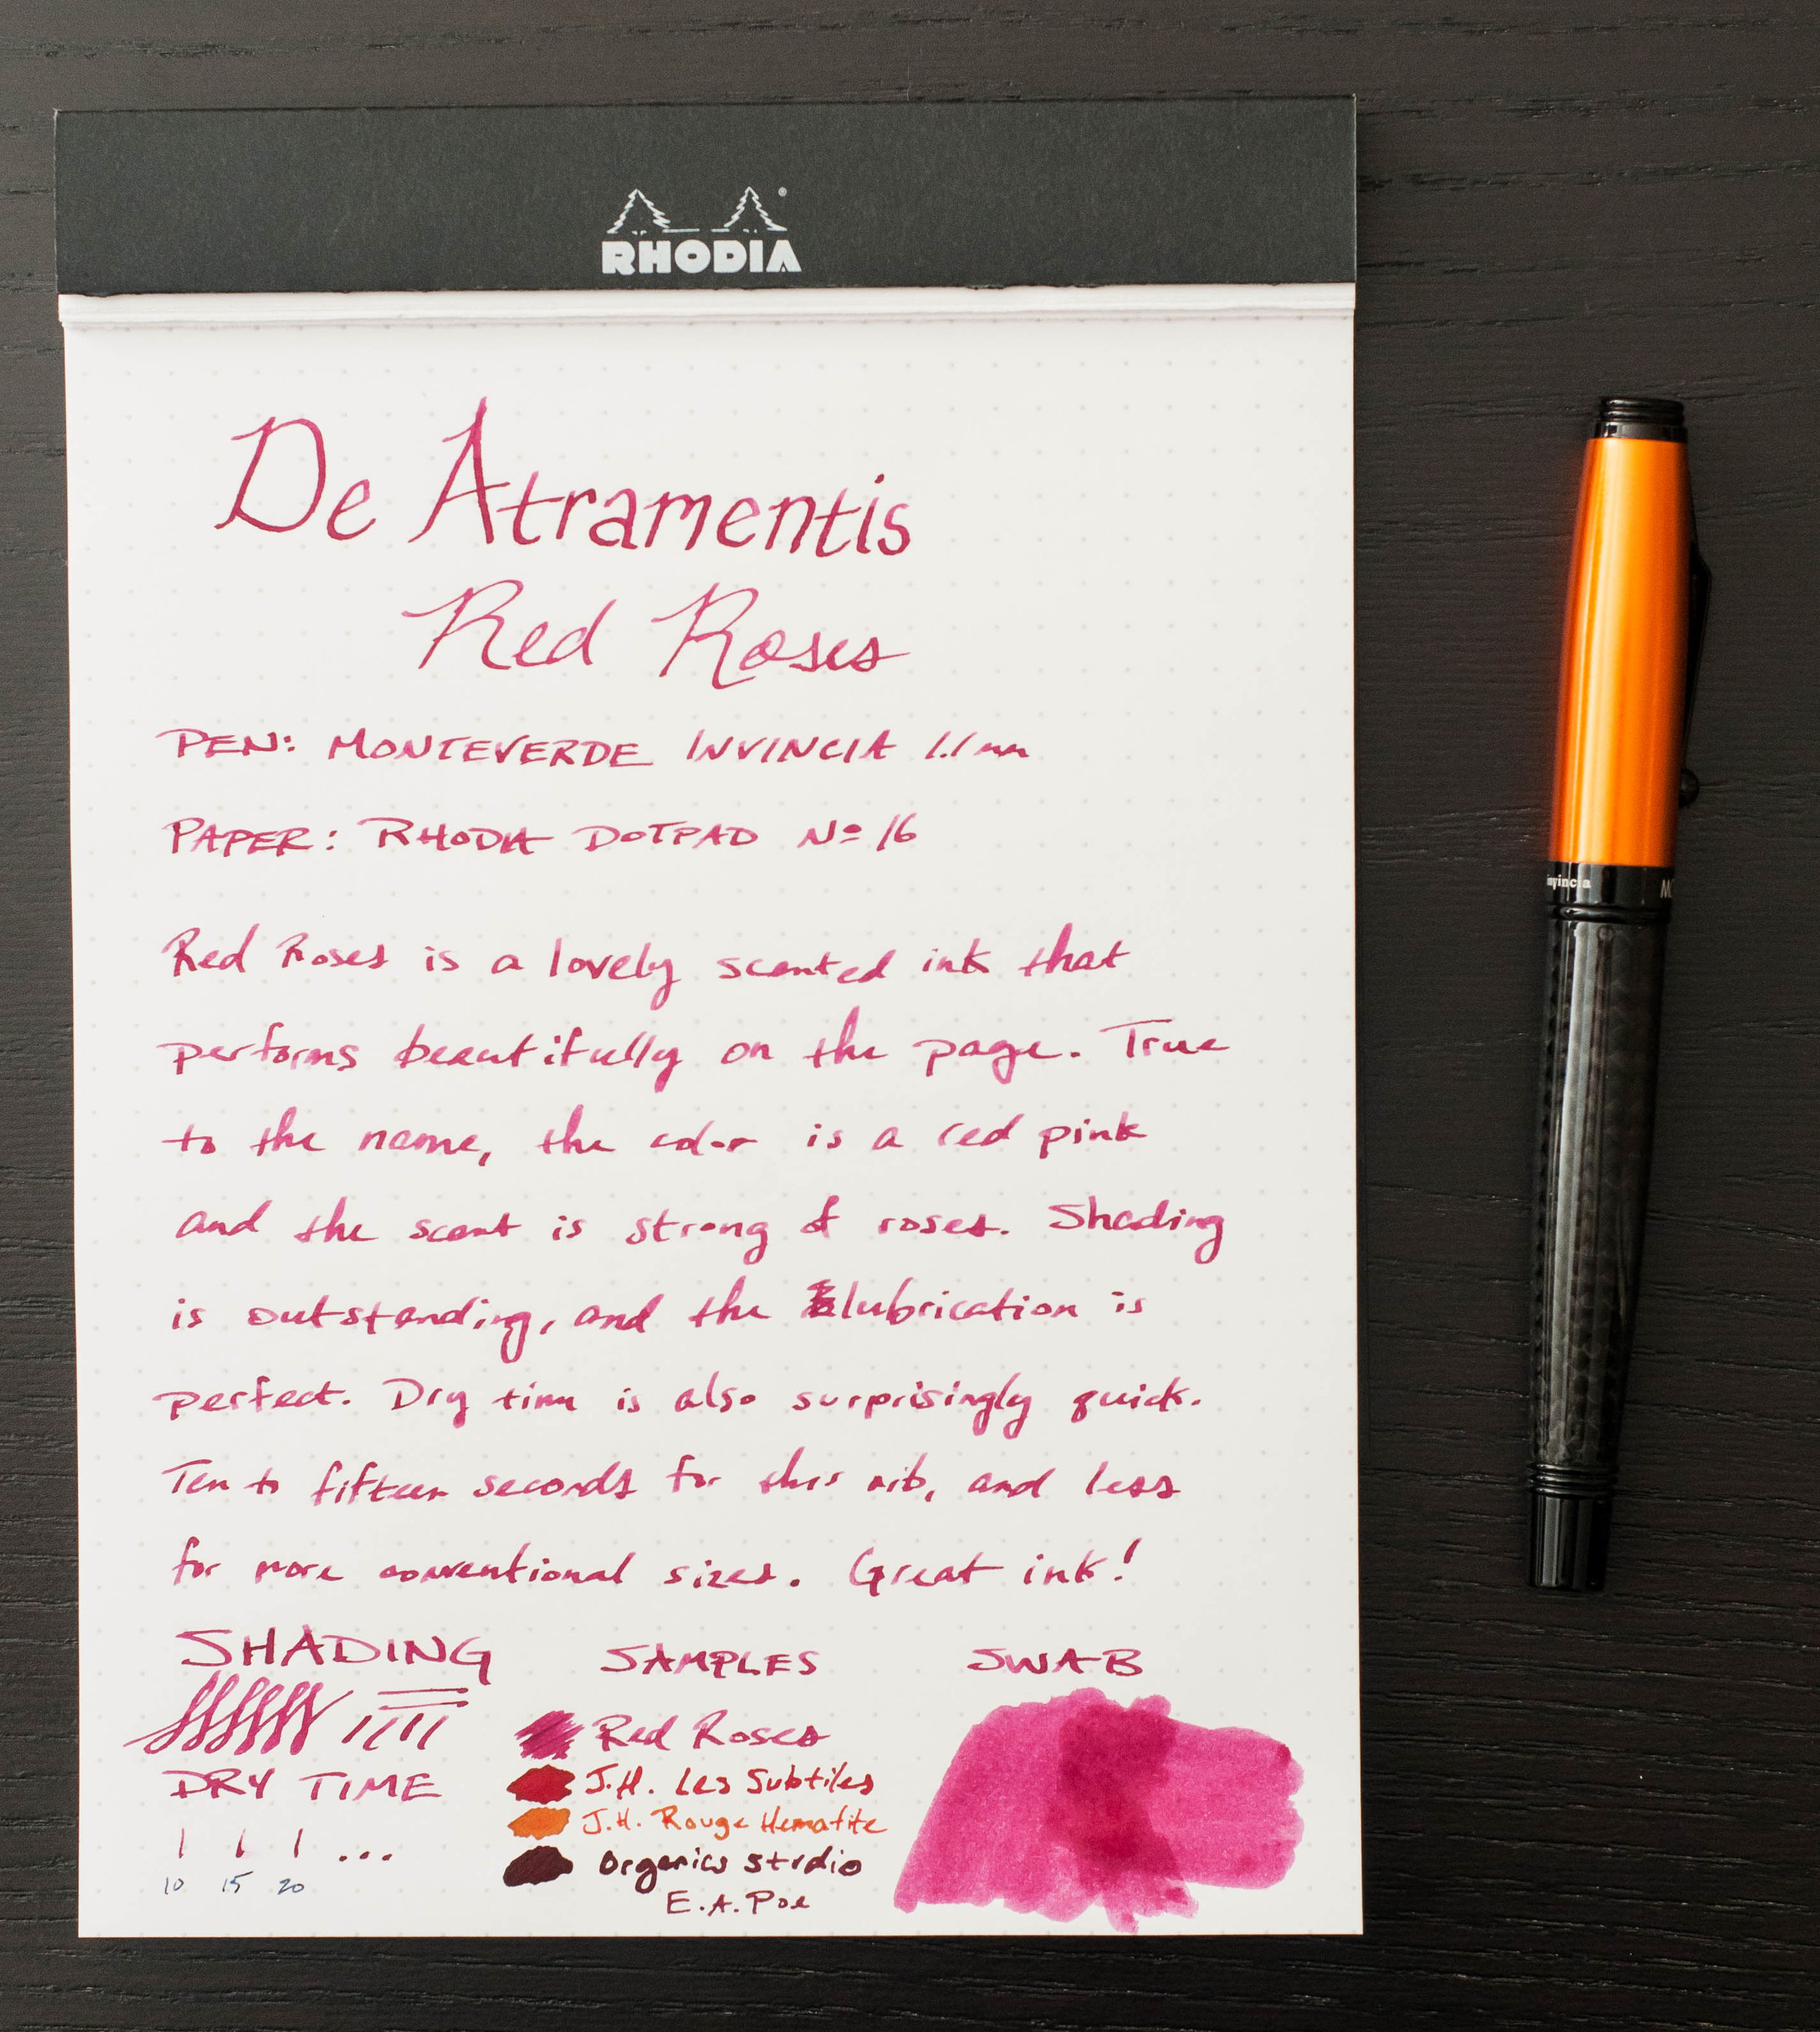 RHODIA
De Atramentis
Red Roses
PEN: MONTEVERDE INVINCIA 1.1mm
PAPER: RHODIA DOTPAD Nº 16
Red Roses is a lovely scented ink that
performs beautifully on the page. True
to the name, the color is a red pink
and the scent is strong of roses. Shading
is outstanding, and the lubrication is
perfect. Dry time is also surprisingly quick.
Ten to fifteen seconds for this nib, and less
for more conventional sizes. Great ink!
SHADING SAMPLES SWAB
Red Roses
J.H. Les Subtiles
J.H. Rouge Hematite
Organics Studio
E.A. Poe
DRY TIME
...
10 15 20
invincia